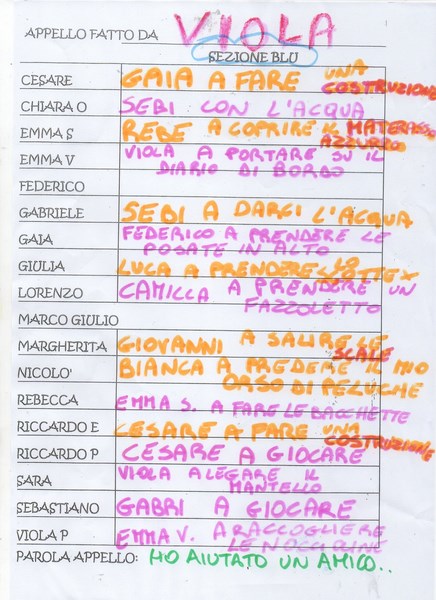 APPELLO FATTO DA VIOLA
SEZIONE BLU
CESARE GAIA A FARE UNA COSTRUZIONE
CHIARA O SEBI CON L'ACQUA
EMMA S REBE A COPRIRE IL MATERASSO AZZURRO
EMMA V VIOLA A PORTARE SU IL
DIARIO DI BORDO
FEDERICO
GABRIELE SEBI A DARCI L'ACQUA
GAIA FEDERICO A PRENDERE LE
POSATE IN ALTO
GIULIA LUCA A PRENDERE LO
LORENZO CAMILLA A PRENDERE UN
FAZZOLETTO
MARCO GIULIO
MARGHERITA GIOVANNI A SALIRE LE
SCALE
NICOLO' BIANCA A PREDERE IL MIO
ORSO DI PELUCHE
REBECCA EMMA S. A FARE LE BACCHETTE
RICCARDO E CESARE A FARE UNA COSTRUZIONE
RICCARDO P CESARE A GIOCARE
SARA VIOLA A LEGARE IL
MANTELLO
SEBASTIANO GABRI A GIOCARE
VIOLA P EMMA V. A RACCOGLIERE
LE NOCCIOLINE
PAROLA APPELLO: HO AIUTATO UN AMICO..